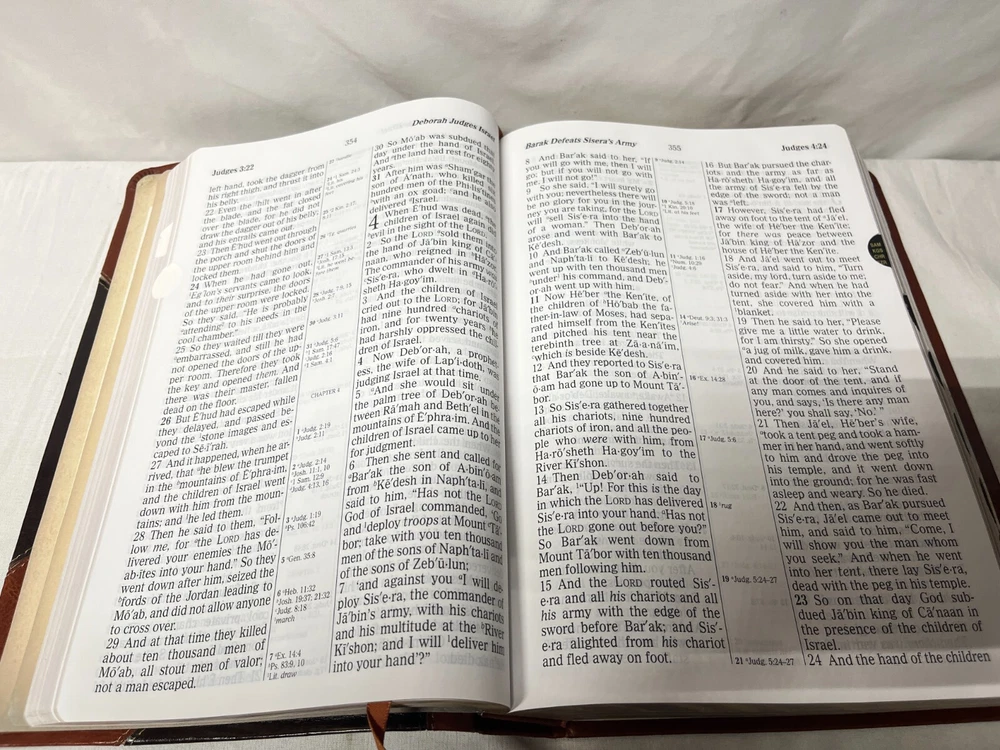 Judges 3:22
354
Deborah Judges Israel
left hand, took the dagger from
his right thigh, and thrust it into
his belly.
22 Even the hilt went in after
the blade, and the fat closed
over the blade, for he did not
draw the dagger out of his belly;
and his entrails came out.
23 Then Ē'hud went out through
the porch and shut the doors of
the upper room behind him and
locked them.
24 When he had gone out,
Eg'lon's servants came to look,
and to their surprise, the doors
of the upper room were locked.
So they said, "He is probably
attending to his needs in the
cool chamber."
25 So they waited till they were
embarrassed, and still he had
not opened the doors of the up-
per room. Therefore they took
the key and opened them. And
there was their master, fallen
dead on the floor.
26 But Ē'hud had escaped while
they delayed, and passed be-
yond the stone images and es-
caped to Sē-i'rah.
27 And it happened, when he ar-
rived, that he blew the trumpet
in the mountains of Ē'phra-im,
and the children of Israel went
down with him from the moun-
tains; and he led them.
28 Then he said to them, "Fol-
low me, for the LORD has de-
livered your enemies the Mō'-
ab-ites into your hand." So they
went down after him, seized the
fords of the Jordan leading to
Mō'ab, and did not allow anyone
to cross over.
29 And at that time they killed
about ten thousand men of
Mō'ab, all stout men of valor;
not a man escaped.
CHAPTER 4
1 Judg. 2:19
Judg. 2:11
2 Judg. 2:14
Josh. 11:1, 10
1 Sam. 12:9
Judg. 4:13, 16
3 Judg. 1:19
Ps. 106:42
5 Gen. 35:8
6 Heb. 11:32
Josh. 19:37; 21:32
Judg. 8:18
march
7 Ex. 14:4
Ps. 83:9, 10
Lit. draw
30 So Mō'ab was subdued that
day under the hand of Israel.
And the land had rest for eighty
years.
31 After him was Sham'gar the
son of Ā'nath, who killed six
hundred men of the Phi-lis'tines
with an ox goad; and he also
delivered Israel.
4 When Ē'hud was dead, the
children of Israel again did
evil in the sight of the LORD.
2 So the LORD sold them into
the hand of Jā'bin king of Cā'-
naan, who reigned in Hā'zor.
The commander of his army was
Sis'e-ra, who dwelt in Ha-rō'-
sheth Ha-goy'im.
3 And the children of Israel
cried out to the LORD; for Jā'bin
had nine hundred chariots of
iron, and for twenty years he
had harshly oppressed the chil-
dren of Israel.
4 Now Deb'or-ah, a prophet-
ess, the wife of Lap'i-doth, was
judging Israel at that time.
5 And she would sit under
the palm tree of Deb'or-ah be-
tween Rā'mah and Beth'el in the
mountains of Ē'phra-im. And the
children of Israel came up to her
for judgment.
6 Then she sent and called for
Bar'ak the son of A-bin'ō-am
from Kē'desh in Naph'ta-lī, and
said to him, "Has not the LORD
God of Israel commanded, 'Go
and deploy troops at Mount Tā'-
bor; take with you ten thousand
men of the sons of Naph'ta-lī and
of the sons of Zeb'ū-lun;
7 and against you I will de-
ploy Sis'e-ra, the commander of
Jā'bin's army, with his chariots
and his multitude at the River
Ki'shon; and I will deliver him
into your hand'?"
Barak Defeats Sisera's Army
355
Judges 4:24
8 And Bar'ak said to her, "If
you will go with me, then I will
go; but if you will not go with
me, I will not go!"
9 So she said, "I will surely go
with you; nevertheless there will
be no glory for you in the jour-
ney you are taking, for the LORD
will sell Sis'e-ra into the hand
of a woman." Then Deb'or-ah
arose and went with Bar'ak to
Kē'desh.
10 And Bar'ak called Zeb'ū-lun
and Naph'ta-lī to Kē'desh; he
went up with ten thousand men
under his command, and Deb'-
or-ah went up with him.
11 Now Hē'ber the Ken'ite, of
the children of Hō'bab the fa-
ther-in-law of Moses, had sepa-
rated himself from the Ken'ites
and pitched his tent near the
terebinth tree at Zā-a-nā'im,
which is beside Kē'desh.
12 And they reported to Sis'e-ra
that Bar'ak the son of A-bin'-
ō-am had gone up to Mount Tā'-
bor.
13 So Sis'e-ra gathered together
all his chariots, nine hundred
chariots of iron, and all the peo-
ple who were with him, from
Ha-rō'sheth Ha-goy'im to the
River Ki'shon.
14 Then Deb'or-ah said to
Bar'ak, "Up! For this is the day
in which the LORD has delivered
Sis'e-ra into your hand. Has not
the LORD gone out before you?"
So Bar'ak went down from
Mount Tā'bor with ten thousand
men following him.
15 And the LORD routed Sis'-
e-ra and all his chariots and all
his army with the edge of the
sword before Bar'ak; and Sis'-
e-ra alighted from his chariot
and fled away on foot.
14 Deut. 9:3; 31:3
Arise!
16 Ex. 14:28
17 Judg. 5:6
18 rug
19 Judg. 5:24–27
21 Judg. 5:24–27
16 But Bar'ak pursued the char-
iots and the army as far as
Ha-rō'sheth Ha-goy'im, and all
the army of Sis'e-ra fell by the
edge of the sword; not a man
was left.
17 However, Sis'e-ra had fled
away on foot to the tent of Jā'el,
the wife of Hē'ber the Ken'ite;
for there was peace between
Jā'bin king of Hā'zor and the
house of Hē'ber the Ken'ite.
18 And Jā'el went out to meet
Sis'e-ra, and said to him, "Turn
aside, my lord, turn aside to me;
do not fear." And when he had
turned aside with her into the
tent, she covered him with a
blanket.
19 Then he said to her, "Please
give me a little water to drink,
for I am thirsty." So she opened
a jug of milk, gave him a drink,
and covered him.
20 And he said to her, "Stand
at the door of the tent, and if
any man comes and inquires of
you, and says, 'Is there any man
here?' you shall say, 'No.' "
21 Then Jā'el, Hē'ber's wife,
took a tent peg and took a ham-
mer in her hand, and went softly
to him and drove the peg into
his temple, and it went down
into the ground; for he was fast
asleep and weary. So he died.
22 And then, as Bar'ak pursued
Sis'e-ra, Jā'el came out to meet
him, and said to him, "Come, I
will show you the man whom
you seek." And when he went
into her tent, there lay Sis'e-ra,
dead with the peg in his temple.
23 So on that day God sub-
dued Jā'bin king of Cā'naan in
the presence of the children of
Israel.
24 And the hand of the children